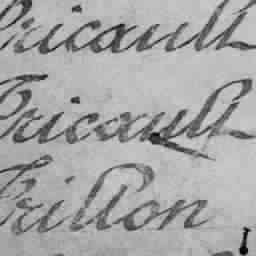 Tricault
Tricault
Trillon